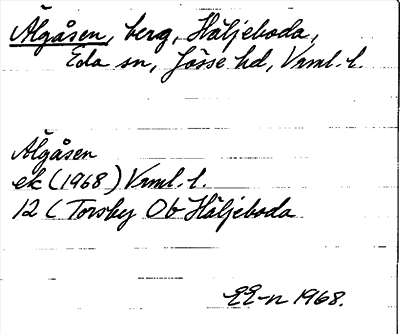 Älgåsen, berg, Häljeboda,
Eda sn, Jösse hd, Vrml. l.
Älgåsen
ek (1968) Vrml. l.
12 C Torsby Ob Häljeboda
EE-n 1968.